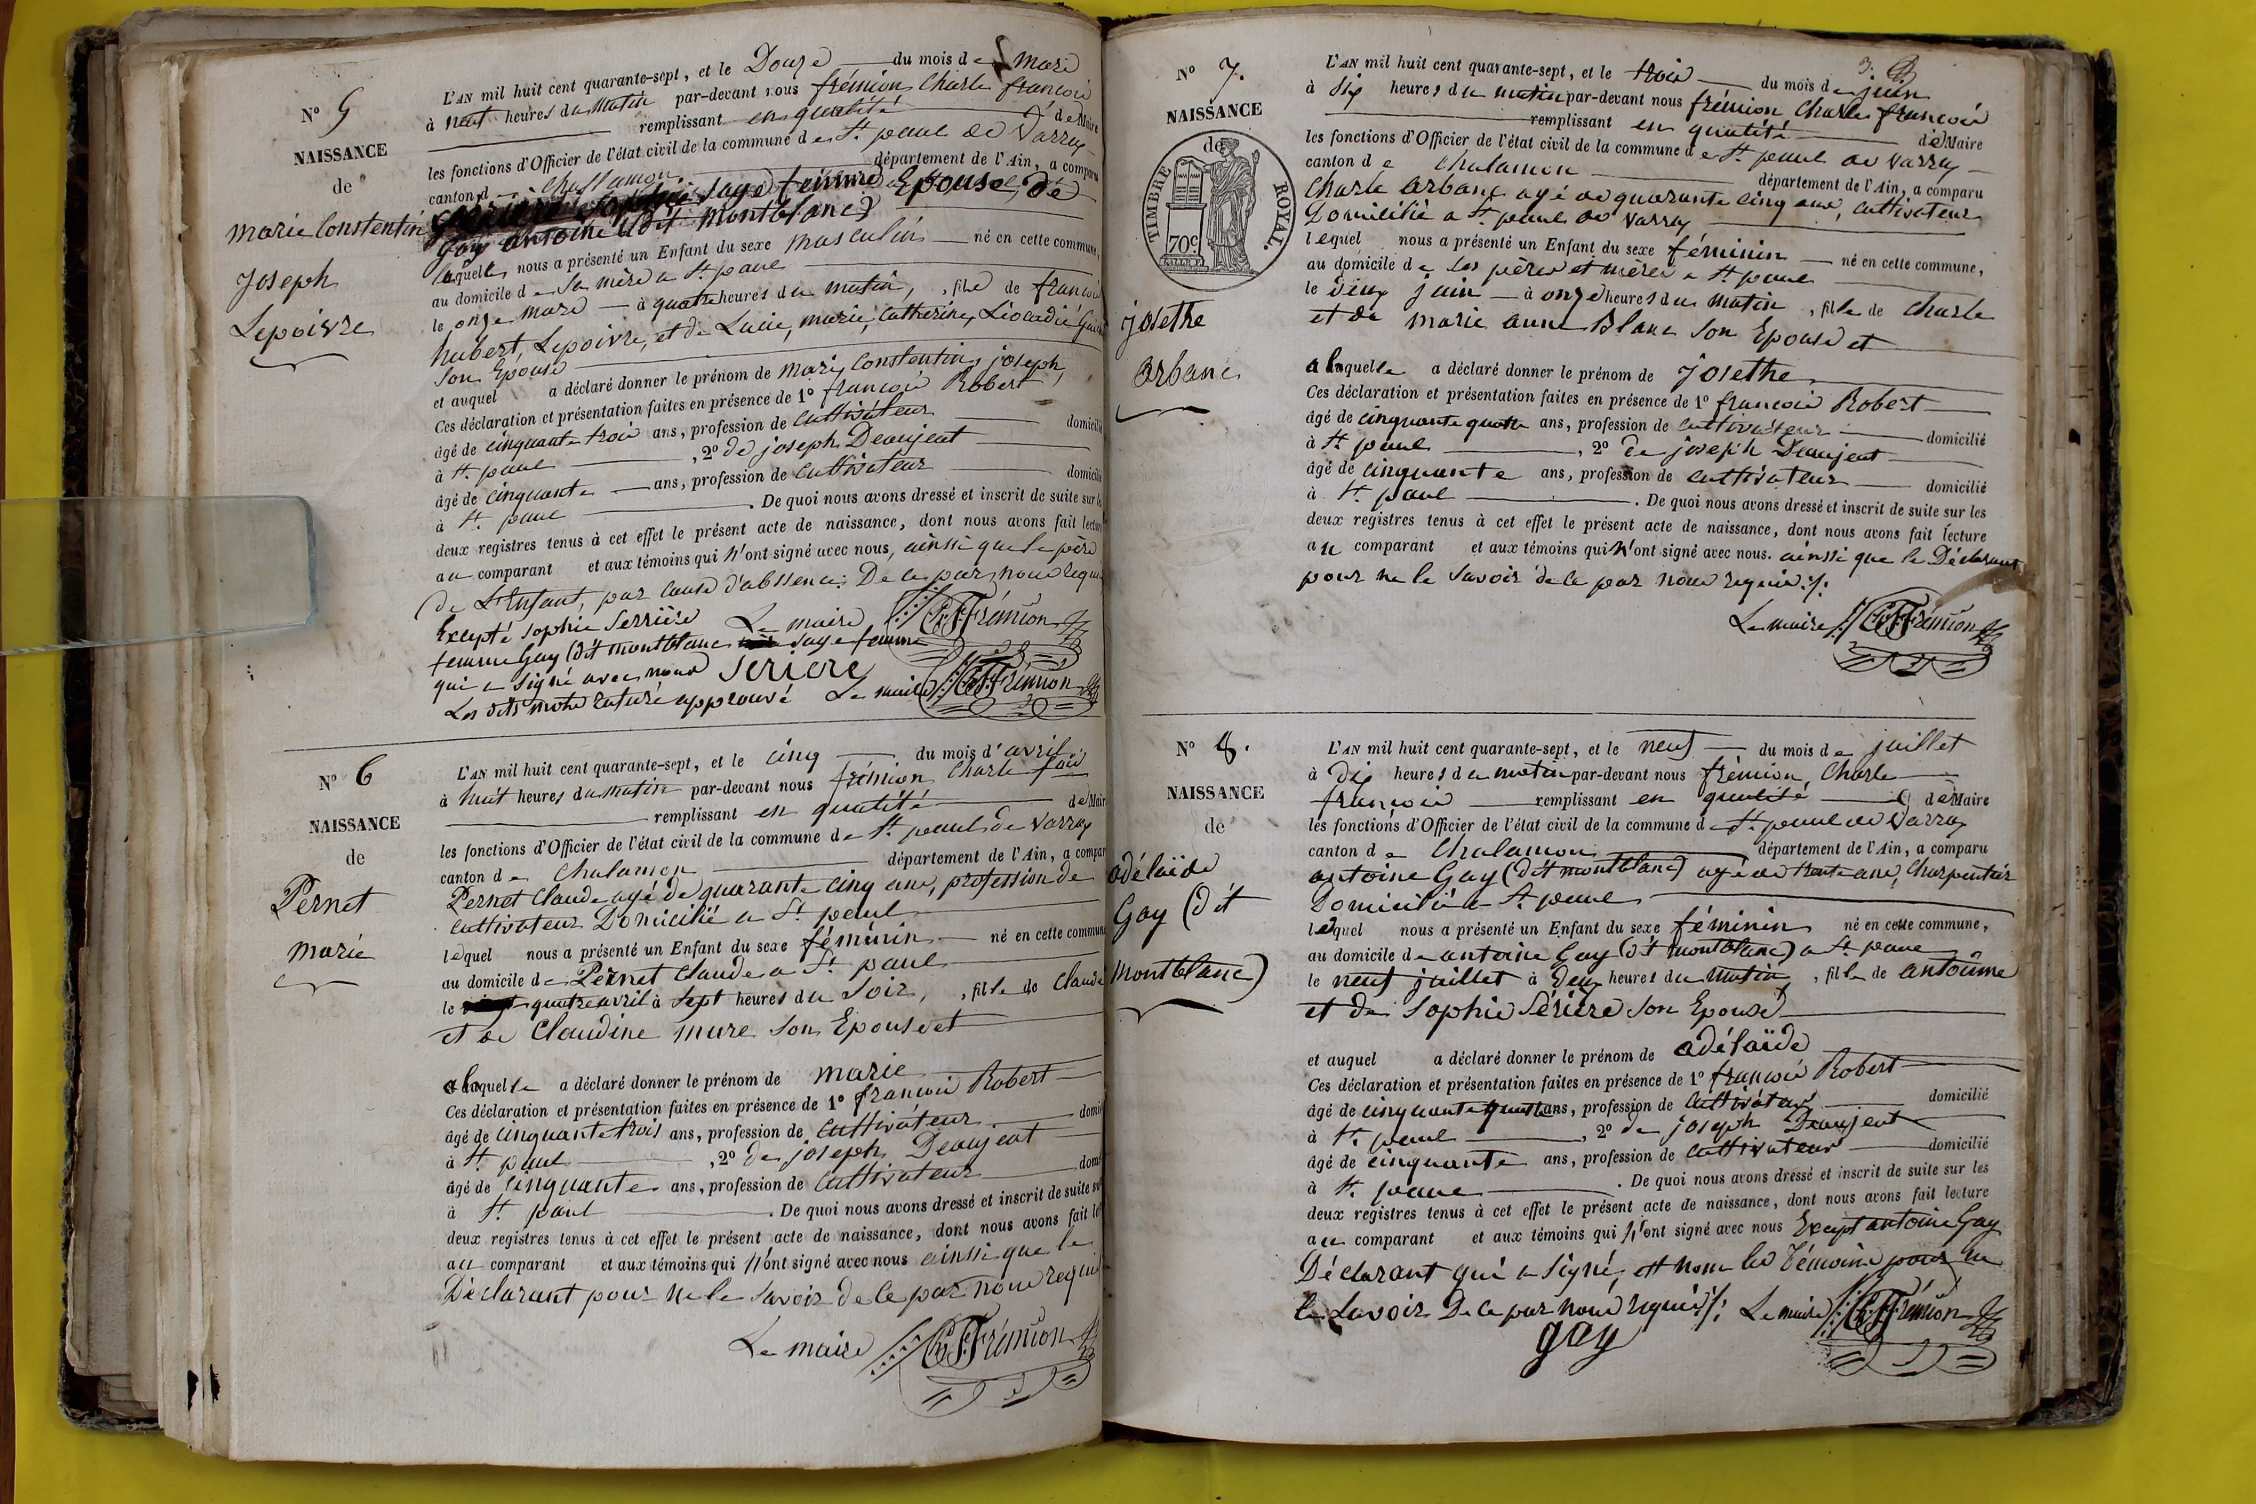 N° 5
NAISSANCE
de
marie Constentin
joseph
Lepoivre
L'AN mil huit cent quarante-sept, et le Douze du mois de mars
à neuf heures du matin par-devant nous frémion Charle francois
remplissant en qualité de Maire
les fonctions d'Officier de l'état civil de la commune de St paul de Varray
canton d Challamon département de l'Ain, a comparu
sage femme Epouse de
Gay antoine (dit montblanc)
laquelle nous a présenté un Enfant du sexe masculin né en cette commune,
au domicile de sa mère a St paul
le onze mars à quatre heures du matin, fils de francois
hubert, Lepoivre, et de Lucie, marie, Catherine, Liocardie
son Epouse
et auquel a déclaré donner le prénom de marie Constentin, joseph,
Ces déclaration et présentation faites en présence de 1° francois Robert
âgé de cinquante trois ans, profession de cultivateur domicilié
à St paul , 2° de joseph Deaujeat
âgé de cinquante ans, profession de cultivateur domicilié
à St paul . De quoi nous avons dressé et inscrit de suite sur les
deux registres tenus à cet effet le présent acte de naissance, dont nous avons fait lecture
au comparant et aux témoins qui n'ont signé avec nous, ainssi que le père
de L'Enfant, par cause d'abssence: De ce par nous requis
Excepté sophie Serrière Le maire Ch F Frémion
femme Gay (dit montblanc sage femme
qui a signé avec nous Seriere
Les dits mots raturé approuvé Le maire Ch F Frémion
N° 6
NAISSANCE
de
Pernet
marie
L'AN mil huit cent quarante-sept, et le cinq du mois d'avril
à huit heures du matin par-devant nous frémion Charle fois
remplissant en qualité de Maire
les fonctions d'Officier de l'état civil de la commune de St paul de Varray
canton de Chalamon département de l'Ain, a comparu
Pernet Claude agé de quarante cinq ans, profession de
cultivateur Domicilié a St paul
lequel nous a présenté un Enfant du sexe féminin né en cette commune
au domicile de Pernet Claude a St paul
le quatre avril à sept heures du soir, , fille de Claude
et de Claudine mure son Epouse et
a laquelle a déclaré donner le prénom de marie
Ces déclaration et présentation faites en présence de 1° francois Robert
âgé de cinquante trois ans, profession de cultivateur domicilié
à St paul , 2° de joseph Deaujeat
âgé de cinquante ans, profession de cultivateur domicilié
à St paul . De quoi nous avons dressé et inscrit de suite sur
deux registres tenus à cet effet le présent acte de naissance, dont nous avons fait
au comparant et aux témoins qui n'ont signé avec nous ainssi que le
Déclarant pour ne le savoir de ce par nous requis
Le maire Ch F Frémion
3.
N° 7.
NAISSANCE
de
TIMBRE ROYAL.
70c
josethe
Arbanc
L'AN mil huit cent quarante-sept, et le trois du mois de juin
à six heures du matin par-devant nous frémion Charle francois
remplissant en qualité de Maire
les fonctions d'Officier de l'état civil de la commune de St paul de Varray
canton de Chalamon département de l'Ain, a comparu
Charle Arbanc agé de quarante cinq ans, cultivateur
Domicilié a St paul de Varray
lequel nous a présenté un Enfant du sexe féminin né en cette commune,
au domicile de ses pères et mères a St paul
le deux juin à onze heures du matin , fille de Charle
et de marie anne Blanc son Epouse et
a laquelle a déclaré donner le prénom de josethe
Ces déclaration et présentation faites en présence de 1° francois Robert
âgé de cinquante quatre ans, profession de cultivateur domicilié
à St paul , 2° de joseph Deaujeat
âgé de cinquante ans, profession de cultivateur domicilié
à St paul . De quoi nous avons dressé et inscrit de suite sur les
deux registres tenus à cet effet le présent acte de naissance, dont nous avons fait lecture
au comparant et aux témoins qui n'ont signé avec nous. ainssi que le Déclarant
pour ne le savoir de ce par nous requis :/.
Le maire Ch F Frémion
N° 8.
NAISSANCE
de
adélaïde
Gay (dit
montblanc)
L'AN mil huit cent quarante-sept, et le neuf du mois de juillet
à dix heures du matin par-devant nous frémion, Charle
francois remplissant en qualité de Maire
les fonctions d'Officier de l'état civil de la commune de St paul de Varray
canton de Chalamon département de l'Ain, a comparu
antoine Gay (dit montblanc) agé de trente ans, Charpentier
Domicilié a St paul
lequel nous a présenté un Enfant du sexe féminin né en cette commune,
au domicile de antoine Gay (dit montblanc) a St paul
le neuf juillet à deux heures du matin , fille de antoine
et de Sophie Sérière son Epouse
et auquel a déclaré donner le prénom de adélaïde
Ces déclaration et présentation faites en présence de 1° francois Robert
âgé de cinquante quatre ans, profession de cultivateur domicilié
à St paul , 2° de joseph Deaujeat
âgé de cinquante ans, profession de cultivateur domicilié
à St paul . De quoi nous avons dressé et inscrit de suite sur les
deux registres tenus à cet effet le présent acte de naissance, dont nous avons fait lecture
au comparant et aux témoins qui n'ont signé avec nous Except antoine Gay
Déclarant qui a signé, et nom les témoins pour ne
le savoir De ce par nous requis :/: Le maire Ch F Frémion
gay